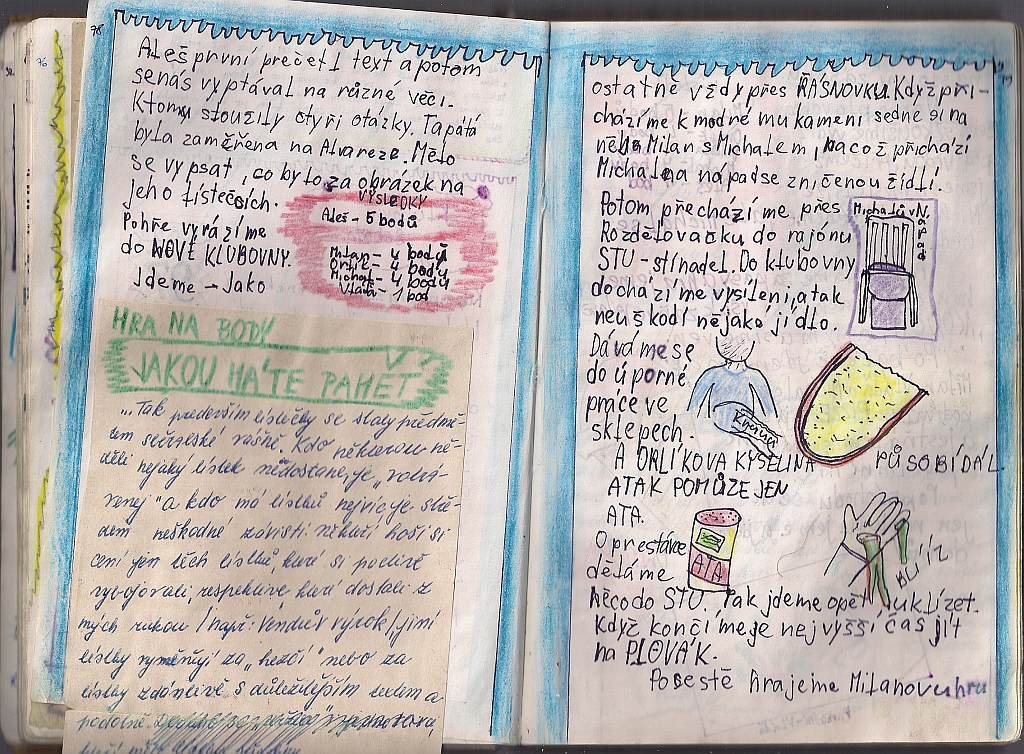 78
Aleš první přečetl text a potom
senás vyptával na různé věci.
Ktomu sloužily čtyři otázky. Ta pátá
byla zaměřena na Alvareze. Mělo
se vypsat, co bylo za obrázek na
jeho lístečcích.
VÝSLEDKY
Aleš - 5 bodů
Milan - 4 body
Orlík - 4 body
Michal - 4 body
Vláďa - 1 bod
Pohře vyrážíme
do NOVÉ KLUBOVNY.
Jdeme - Jako
HRA NA BODY
JAKOU MÁTE PAMĚŤ
"...Tak především lístečky se staly předmě-
tem sběratelské vášně. Kdo některou ne-
děli nějaký lístek nedostane, je
a kdo má lístků nejvíc je stře-
dem neškodné závisti. Někteří hoši si
cení jen těch lístků, které si poctivě
vybojovali, respektive které dostali z
mých rukou /např. Vendův výrok/, jiní
lístky vyměňují za "hezčí" nebo za
lístky zdánlivě s důležitějším textem a
podobně.
ostatně vždy přes ŘÁSNOVKU. Když při-
cházíme k modrému kameni sedne si na
něho Milan s Michalem, načož přichází
Michal na nápad se zničenou židlí.
Potom přecházíme přes
Rozdělovačku do rajónu
STU - stínadel. Do klubovny
docházíme vysíleni, a tak
neuškodí nějaké jídlo.
Michalův Nápad
Dáváme se
do úporné
práce ve
sklepech.
A ORLÍKOVA KYSELINA
PŮSOBÍ DÁL
ATAK POMŮŽE JEN
ATA.
ATA
O přestávce
děláme
něco do STU. Tak jdeme opět uklízet.
Když končíme je nejvyšší čas jít
na PLOVÁK.
Pocestě hrajeme Milanovu hru